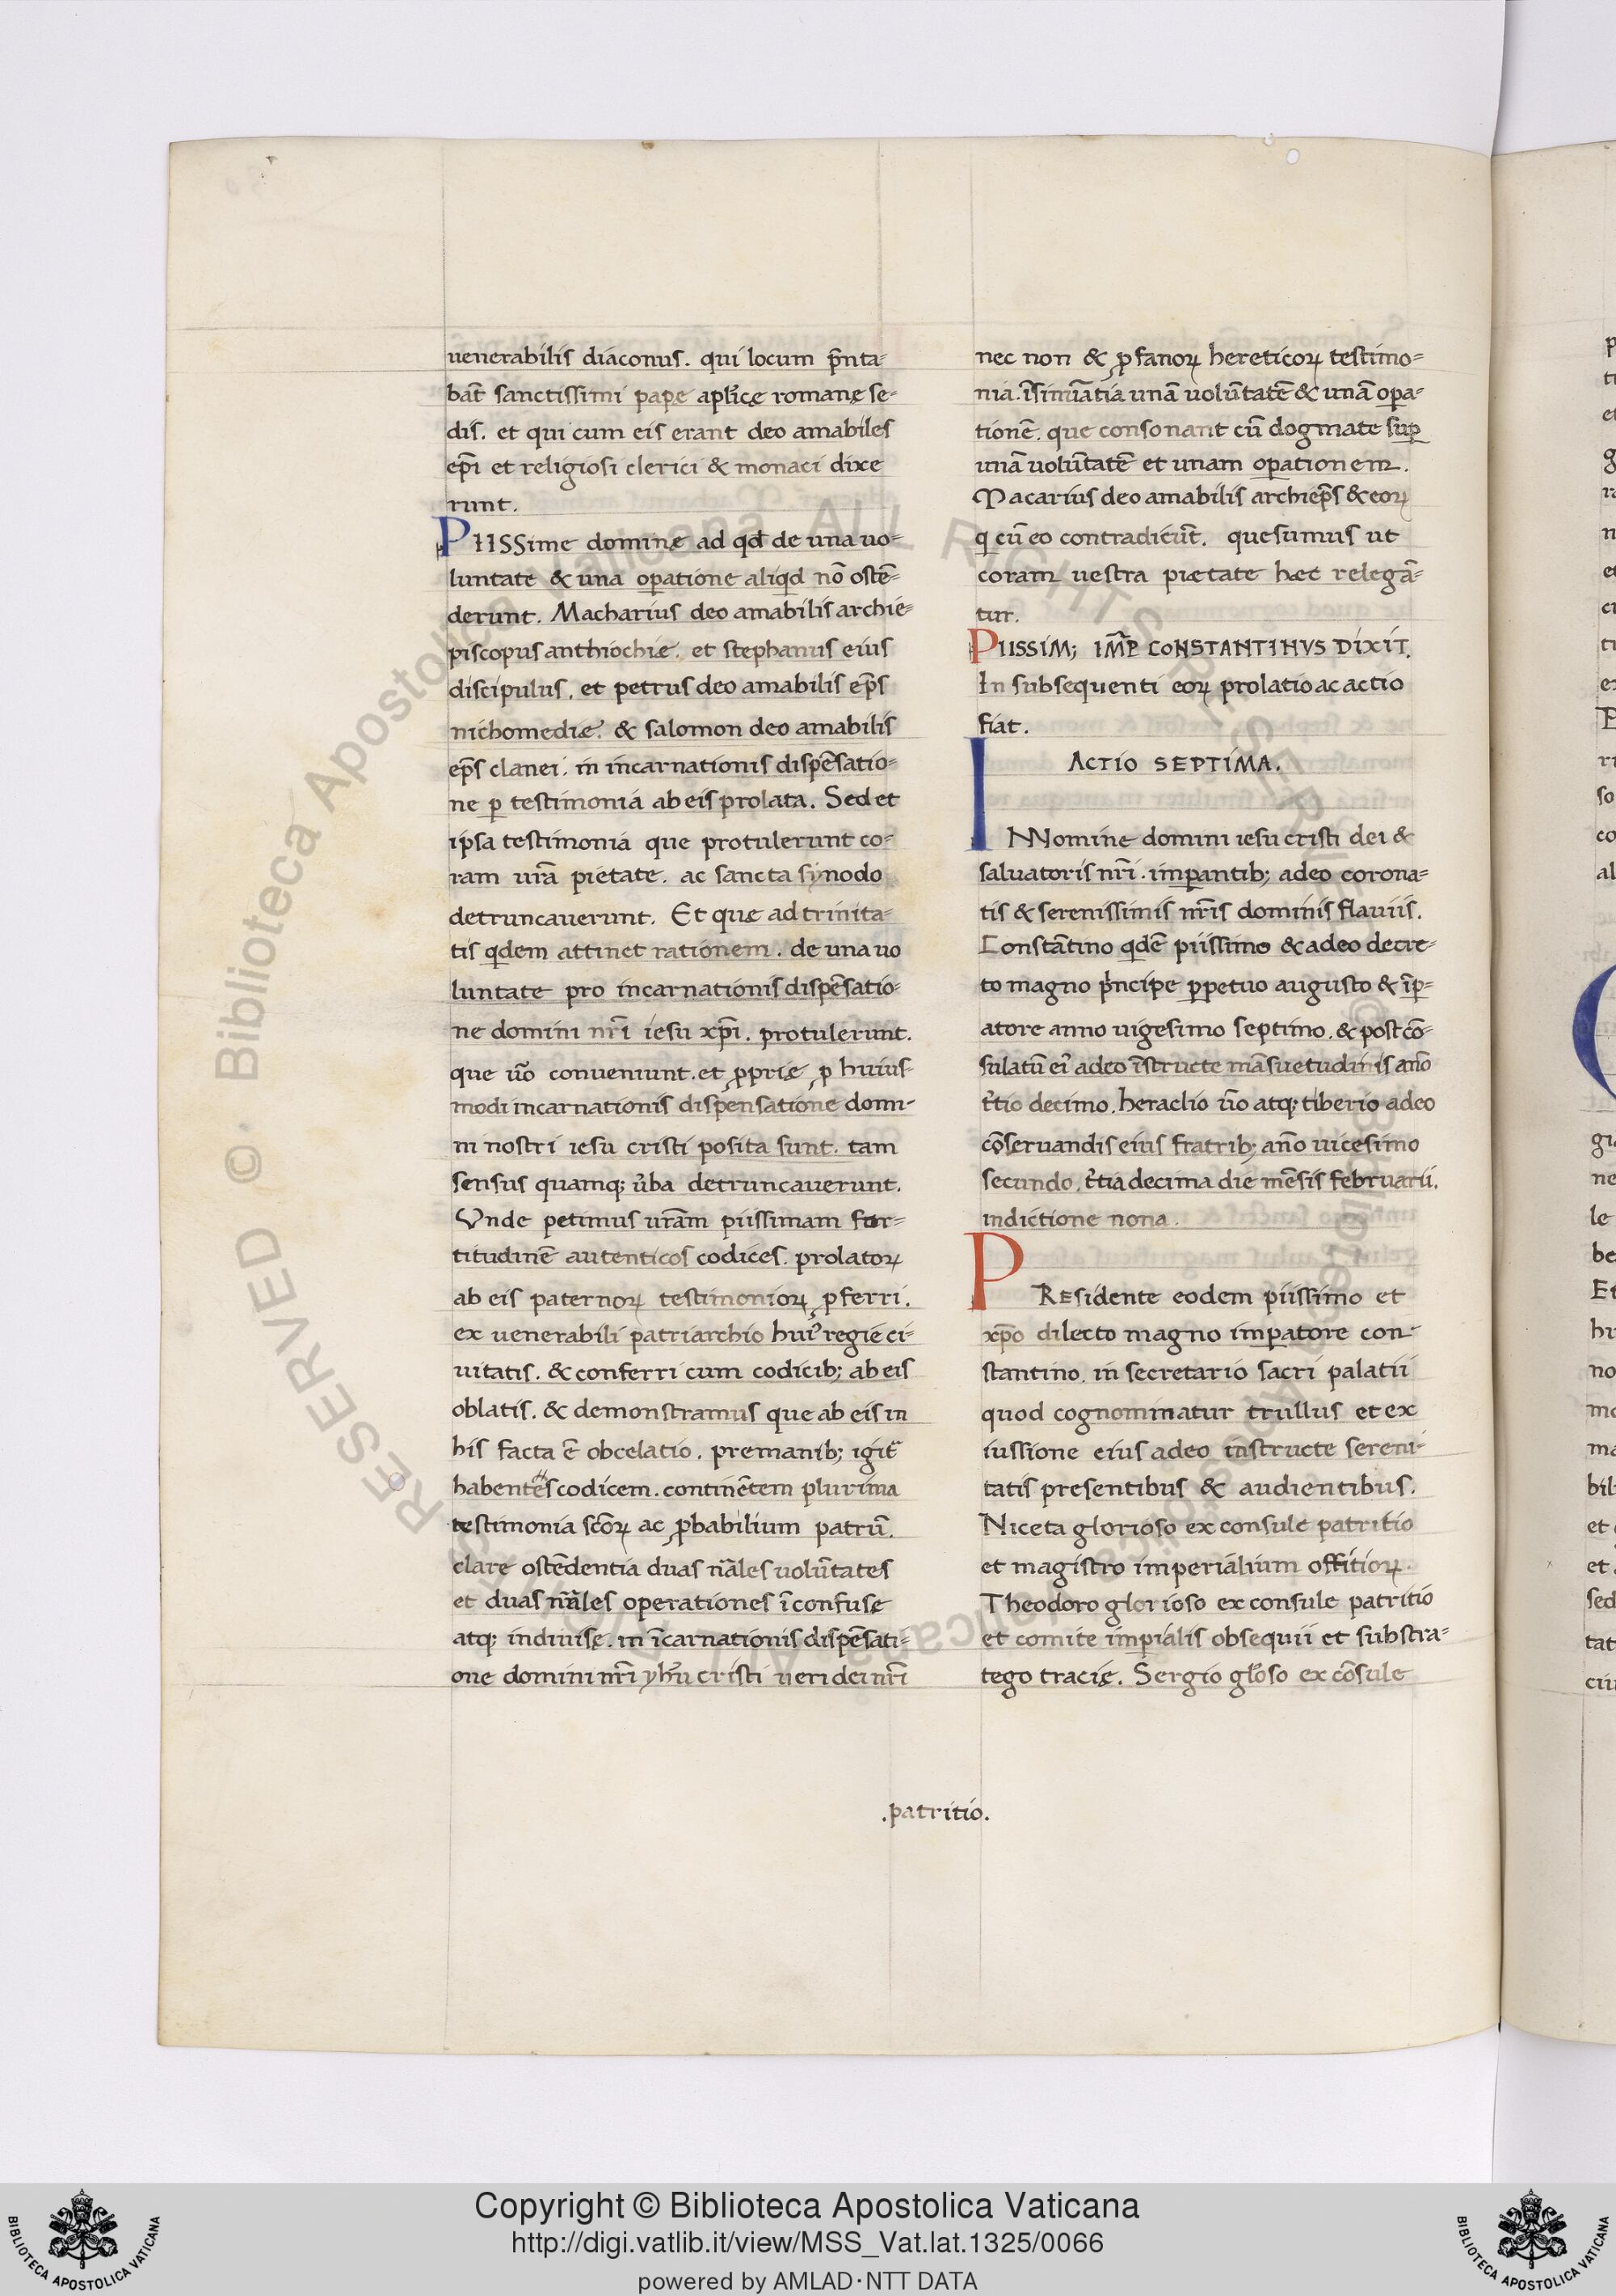 uenerabilis diaconus. qui locum p̄nta-
bat̄ sanctissimi pape apl̄icę romanę se-
dis. et qui cum eis erant deo amabiles
ep̄i et religiosi clerici & monaci dixe
runt.
PIISSime dominę ad qd̄ de una uo-
luntate & una oꝑatione aliqd nō ostē-
derunt. Macharius deo amabilis archie-
piscopus anthiochię. et stephanus eius
discipulus. et petrus deo amabilis ep̄s
nichomedię. & salomon deo amabilis
ep̄s clanei. in incarnationis dispēsatio-
ne ꝑ testimonia ab eis prolata. Sed et
ipsa testimonia que protulerunt co-
ram ur̄a pietate. ac sancta synodo
detruncauerunt. Et que ad trinita-
tis qdem attinet rationem. de una uo
luntate pro incarnationis dispēsatio-
ne domini nr̄i iesu xp̄i. protulerunt.
que ūo conueniunt. et ꝓprię ꝓ huius-
modi incarnationis dispensatione domi-
ni nostri iesu cristi posita sunt. tam
sensus quamq; ūba detruncauerunt.
Vnde petimus urām piissimam for-
titudinē autenticos codices. prolatoꝝ
ab eis paternoꝝ testimonioꝝ ꝓferri.
ex uenerabili patriarchio hui᾽ regię ci-
uitatis. & conferri cum codicib; ab eis
oblatis. & demonstramus que ab eis in
his facta ē obcelatio. premanib; igit᷑
habentes codicem. continētem plurima
testimonia scōꝝ ac ꝓbabilium patrū.
clare ostēdentia duas nāles uolūtates
et duas nāles operationes īconfuse
atq; indiuisę. in īcarnationis dispēsati-
one domini nr̄i yhū cristi ueri dei nr̄i
nec non & ꝓfanoꝝ hereticoꝝ testimo-
nia. unā uolūtatē & unā oꝑa-
tionē. que consonant cū dogmate suꝑ
unā uolūtatē et unam oꝑationem.
Macarius deo amabilis archiep̄s & eoꝝ
q cū eo contradicūt. quesumus ut
coram uestra pietate hec relegā-
tur.
PIISSIM; IM̄P CONSTANTINVS DIXIT.
In subsequenti eoꝝ prolatio ac actio
fiat.
ACTIO SEPTIMA.
INNomine domini iesu cristi dei &
saluatoris nr̄i. imꝑantib; adeo corona-
tis & serenissimis nr̄is dominis flauiis.
Constātino qdē piissimo & adeo decre-
to magno p̄ncipe ꝑpetuo augusto & īꝑ-
atore anno uigesimo septimo. & post cō-
sulatū ei᾽ adeo īstructe māsuetudinis año
t̄tio decimo. heraclio ūo atq; tiberio adeo
cōseruandis eius fratrib; año uicesimo
secundo. t̄tia decima die mēsis februarii.
indictione nona.
PREsidente eodem piissimo et
xp̄o dilecto magno imꝑatore con-
stantino. in secretario sacri palatii
quod cognominatur trullus et ex
iussione eius adeo instructe sereni-
tatis presentibus & audientibus.
Niceta glorioso ex consule patritio
et magistro imperialium offitioꝝ.
Theodoro glorioso ex consule patritio
et comite imꝑialis obsequii et substra-
tego tracię. Sergio gl̄oso ex cōsule
.patritio.
Copyright © Biblioteca Apostolica Vaticana
http://digi.vatlib.it/view/MSS_Vat.lat.1325/0066
powered by AMLAD·NTT DATA